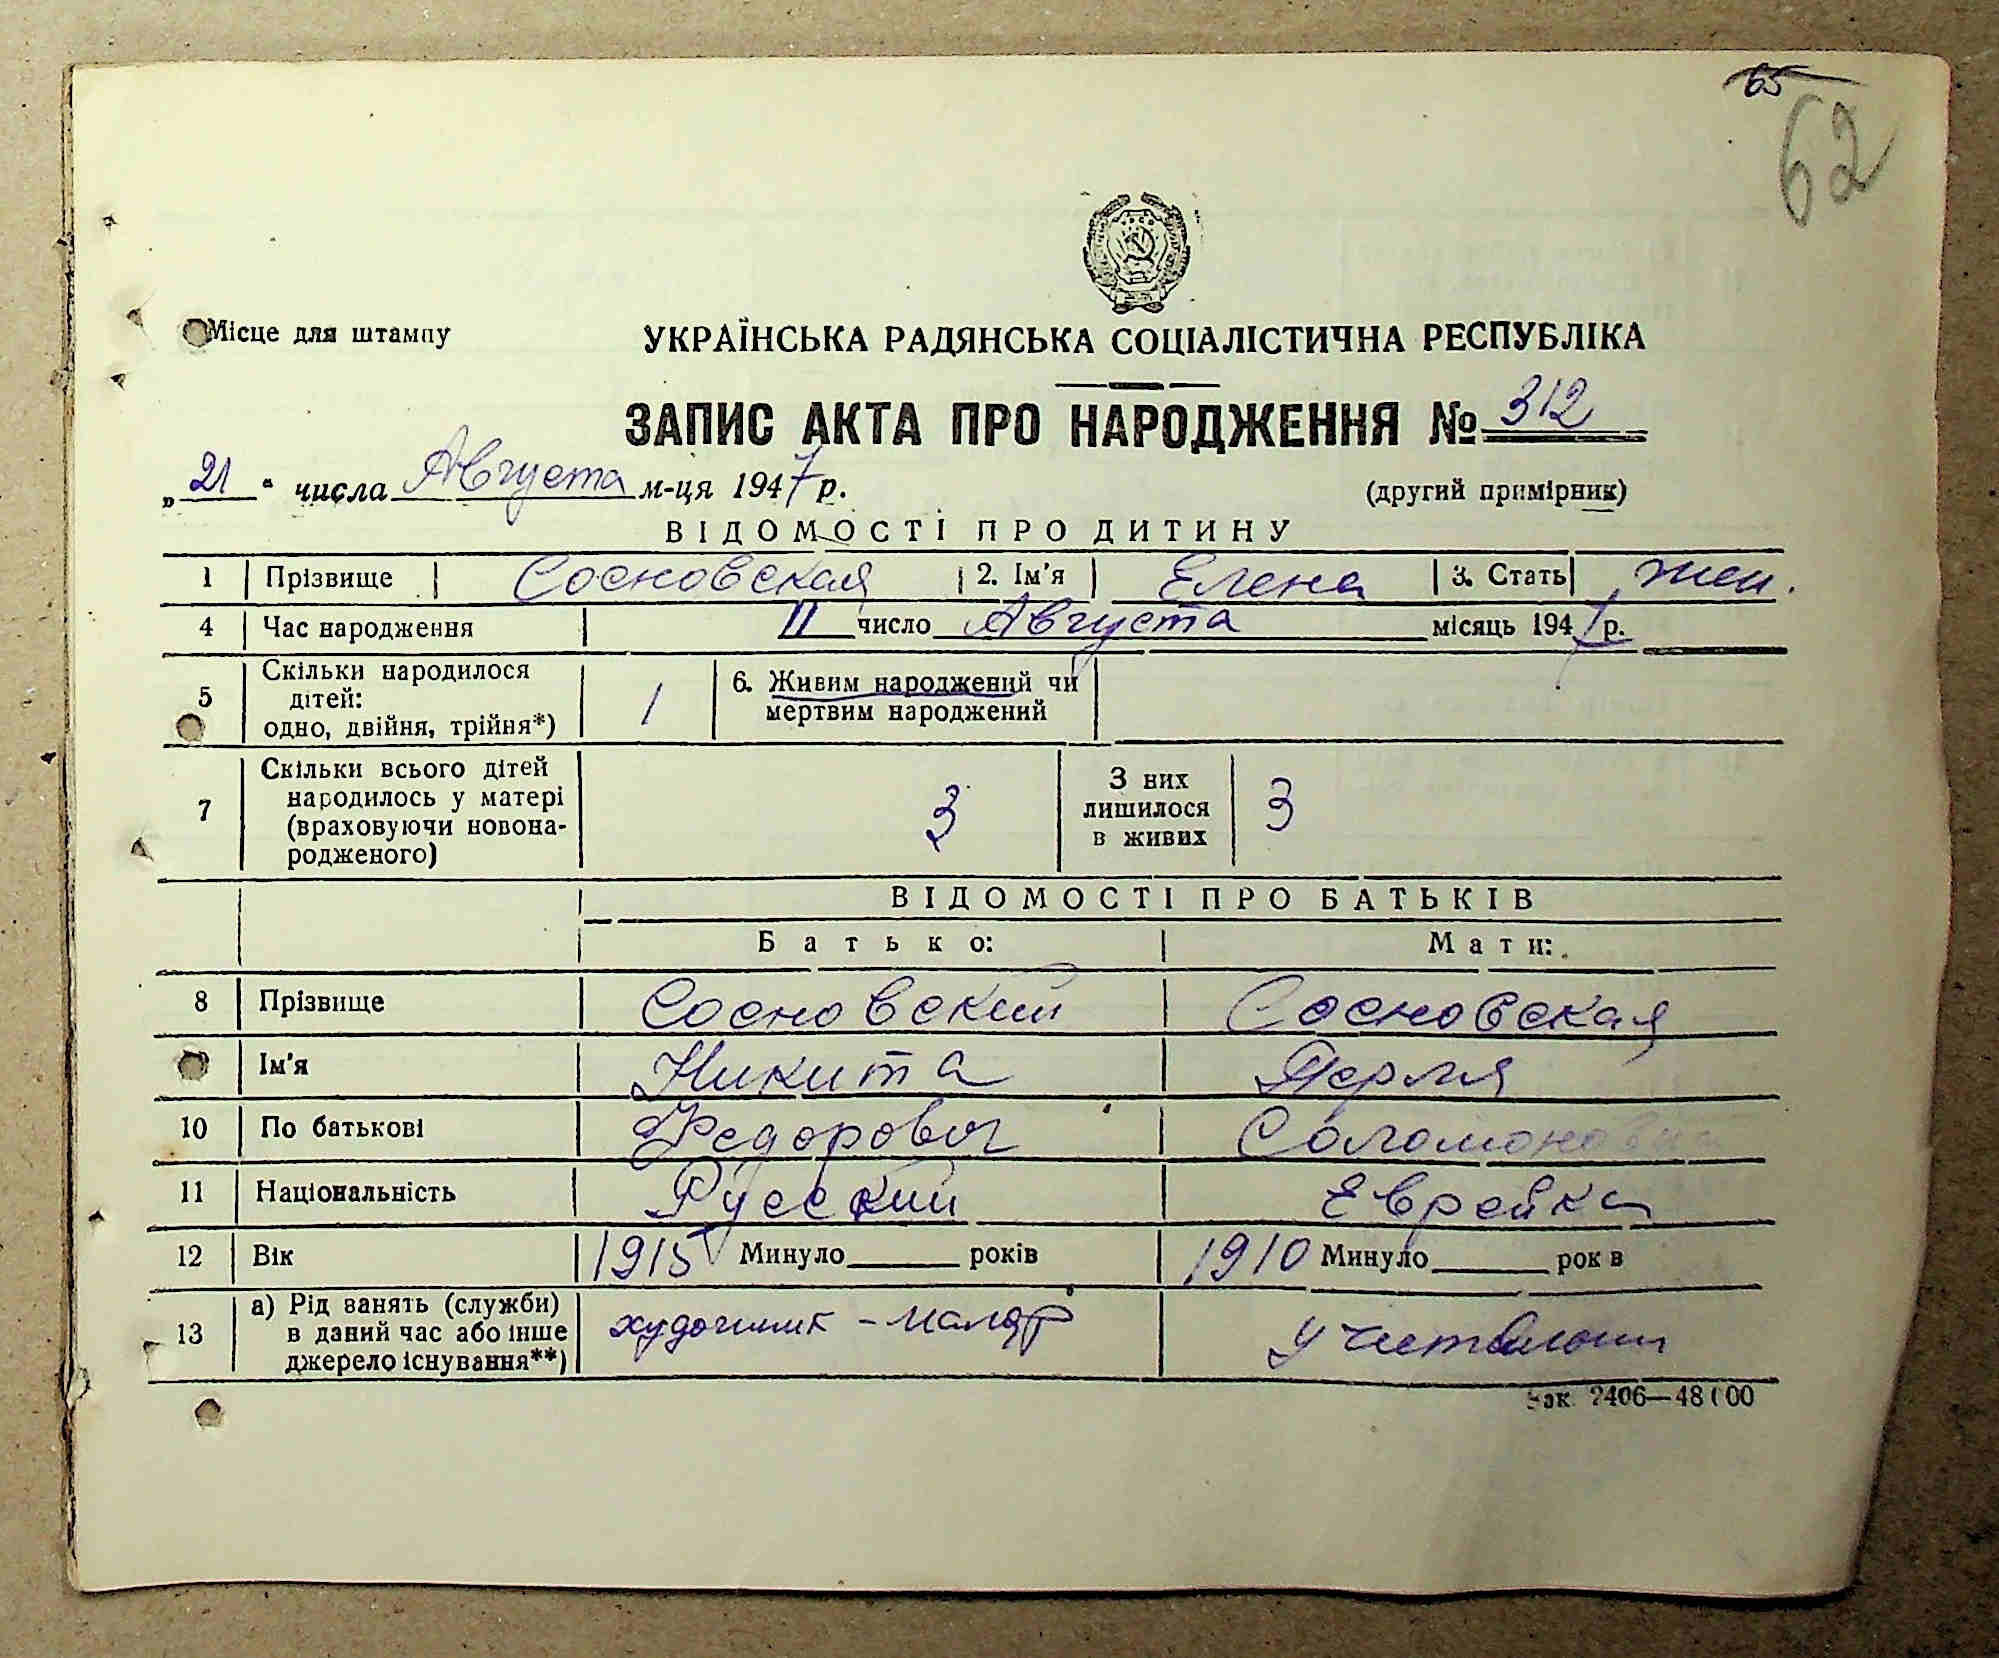 65
62
Місце для штампу
УКРАЇНСЬКА РАДЯНСЬКА СОЦІАЛІСТИЧНА РЕСПУБЛІКА
ЗАПИС АКТА ПРО НАРОДЖЕННЯ № 312
„21“ числа Августа м-ця 1947 р. (другий примірник)
ВІДОМОСТІ ПРО ДИТИНУ
1 Прізвище Сосновская 2. Ім'я Елена 3. Стать жен.
4 Час народження 11 число Августа місяць 1947 р.
5 Скільки народилося дітей: одно, двійня, трійня*) 1 6. Живим народжений чи мертвим народжений
7 Скільки всього дітей народилось у матері (враховуючи новонародженого) 3 З них лишилося в живих 3
ВІДОМОСТІ ПРО БАТЬКІВ
Батько: Мати:
8 Прізвище Сосновский Сосновская
Ім'я Никита Перля
10 По батькові Федорович Соломоновна
11 Національність Русский Еврейка
12 Вік 1915 Минуло ____ років 1910 Минуло ____ рок в
13 а) Рід занять (служби) в даний час або інше джерело існування**) художник - маляр
Зак. 2406—48000